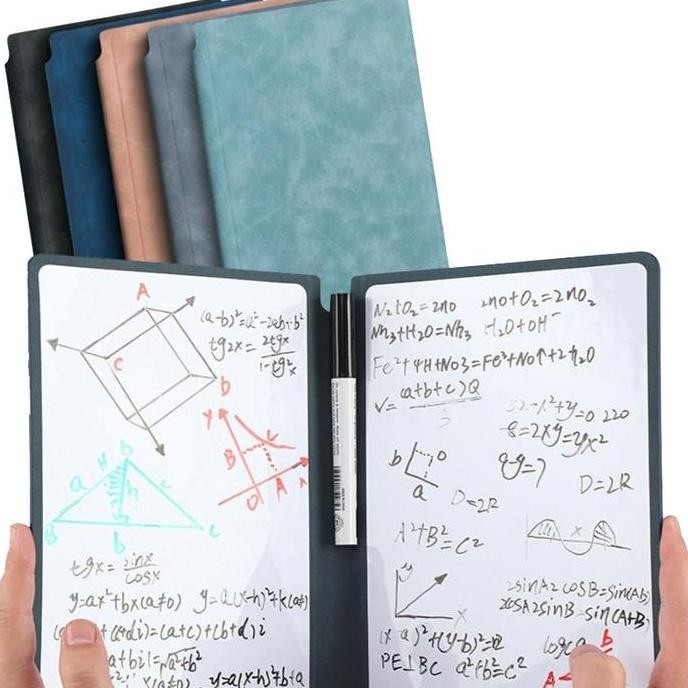 A
(a-b)²=a²-2ab+b²
tg2x= 2tgx
1-tg²x
C
b
Y
B
C
O A
H b
a c
h
B b C
tgx= sinx
cosx
y=ax²+bx(a≠0) y=a(x-h)²+k(a≠
+(c+di)=(a+c)+(b+d)i
a+bi|=√a²+b²
y=a(x-h)²+b+a
N2+O2=2no 2no+O2=2nO2
Nh3+H2O=Nh3 H2O+OH⁻
Fe²+4H+NO3=Fe³+NO↑+2h2O
V= (a+b+c)Q
+y=0 220
8=2xy=yx²
qy=7
b O
a
D=2R D=2R
A²+B²=C²
x
y
x
2sinA2cosB=sin(Ab)
2cosA2sinB=sin(A+B)
(x-a)²+(y-b)²=
logca b
PE⊥BC a²+b²=c²
A